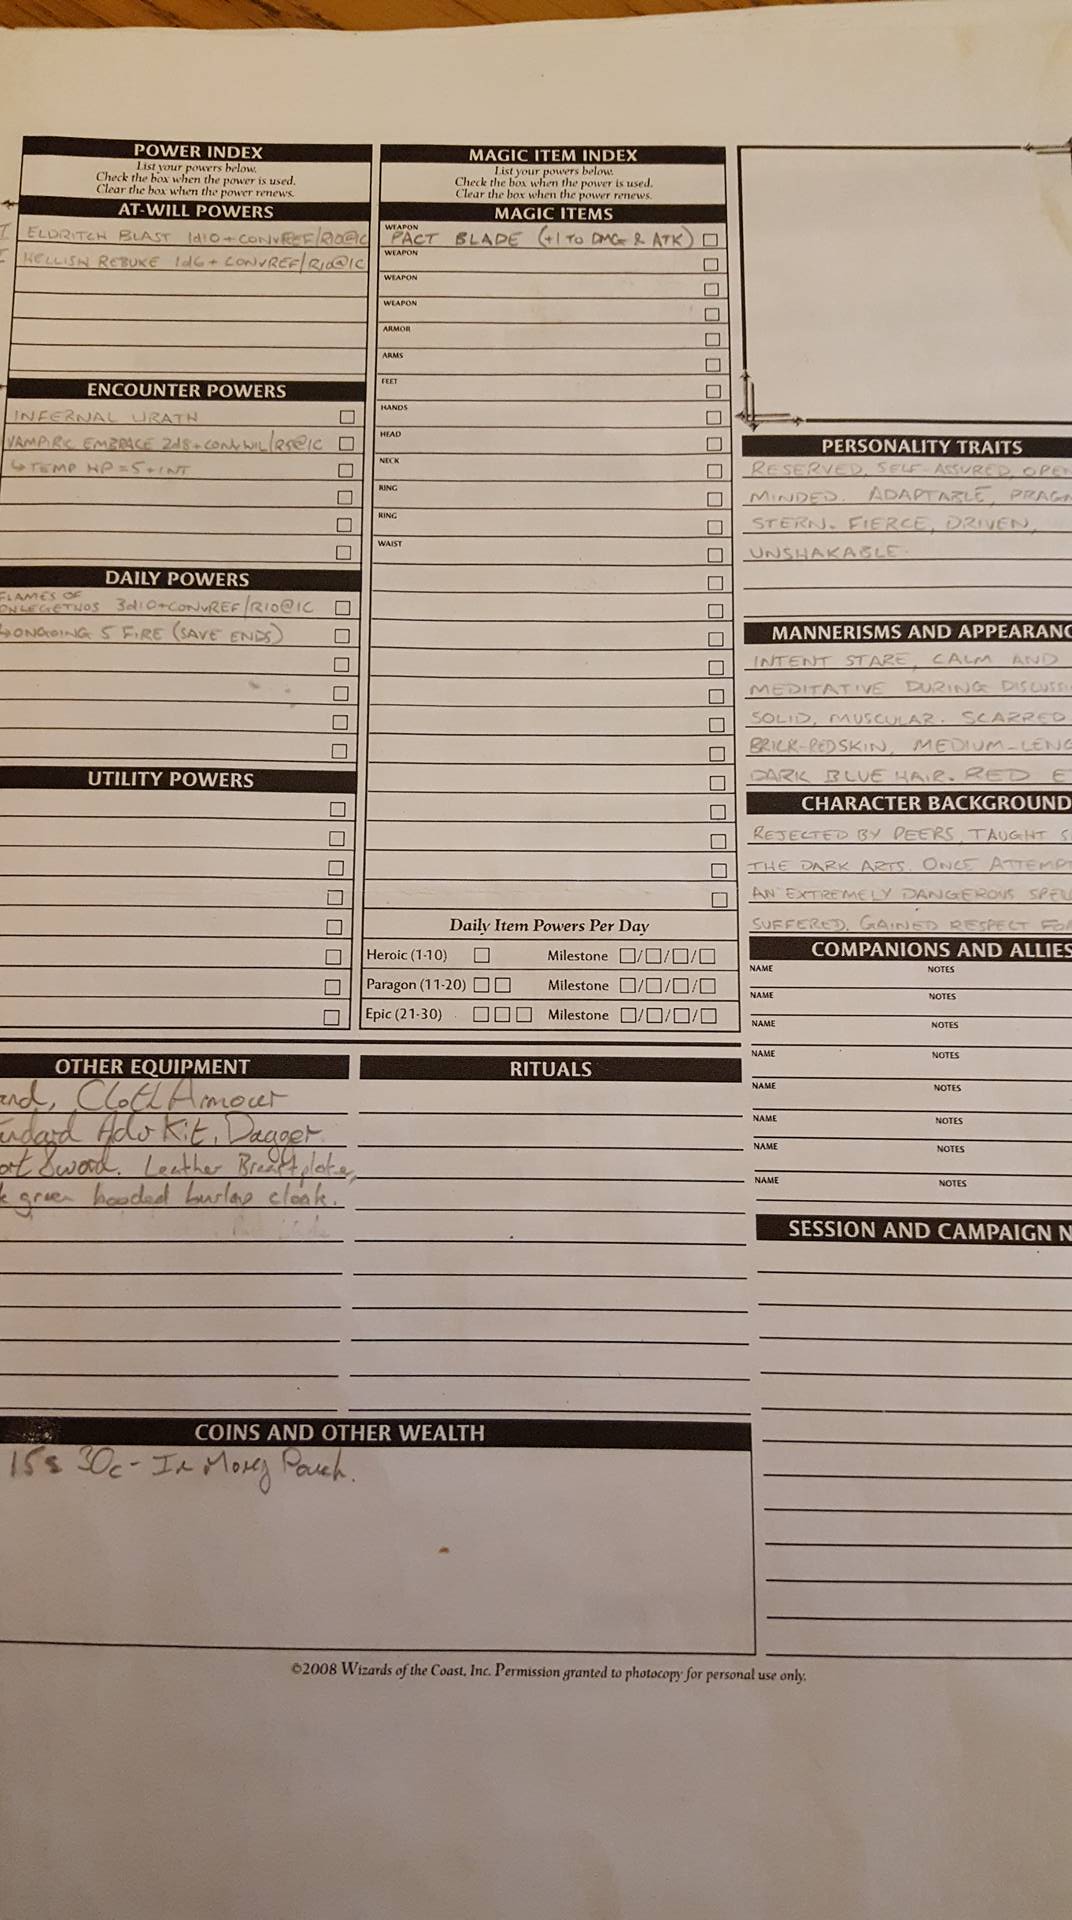 POWER INDEX
List your powers below.
Check the box when the power is used.
Clear the box when the power renews.
AT-WILL POWERS
ELDRITCH BLAST 1d10+CONvREF/R10@1C
HELLISH REBUKE 1d6+CONvREF/R10@1C
ENCOUNTER POWERS
INFERNAL WRATH
VAMPIRIC EMBRACE 2d8+CONvWIL/R5@1C
↳TEMP HP=5+INT
DAILY POWERS
FLAMES OF
PHLEGETHOS 3d10+CONvREF/R10@1C
↳ONGOING 5 FIRE (SAVE ENDS)
UTILITY POWERS
MAGIC ITEM INDEX
List your powers below.
Check the box when the power is used.
Clear the box when the power renews.
MAGIC ITEMS
WEAPON
PACT BLADE (+1 TO DMG & ATK)
WEAPON
WEAPON
WEAPON
ARMOR
ARMS
FEET
HANDS
HEAD
NECK
RING
RING
WAIST
Daily Item Powers Per Day
Heroic (1-10) Milestone / / /
Paragon (11-20) Milestone / / /
Epic (21-30) Milestone / / /
PERSONALITY TRAITS
RESERVED, SELF-ASSURED, OPEN
MINDED. ADAPTABLE, PRAGM
STERN. FIERCE, DRIVEN,
UNSHAKABLE.
MANNERISMS AND APPEARANC
INTENT STARE, CALM AND
MEDITATIVE DURING DISCUSSI
SOLID, MUSCULAR. SCARRED
BRICK-RED SKIN, MEDIUM-LENG
DARK BLUE HAIR. RED E
CHARACTER BACKGROUND
REJECTED BY PEERS, TAUGHT S
THE DARK ARTS. ONCE ATTEMPT
AN EXTREMELY DANGEROUS SPEL
SUFFERED. GAINED RESPECT FO
COMPANIONS AND ALLIES
NAME NOTES
NAME NOTES
NAME NOTES
NAME NOTES
NAME NOTES
NAME NOTES
NAME NOTES
NAME NOTES
SESSION AND CAMPAIGN N
OTHER EQUIPMENT
and, Cloth Armour
andard Adv Kit, Dagger
ort Sword. Leather Breastplate,
k green hooded burlap cloak.
RITUALS
COINS AND OTHER WEALTH
15s 30c - In Money Pouch.
©2008 Wizards of the Coast, Inc. Permission granted to photocopy for personal use only.